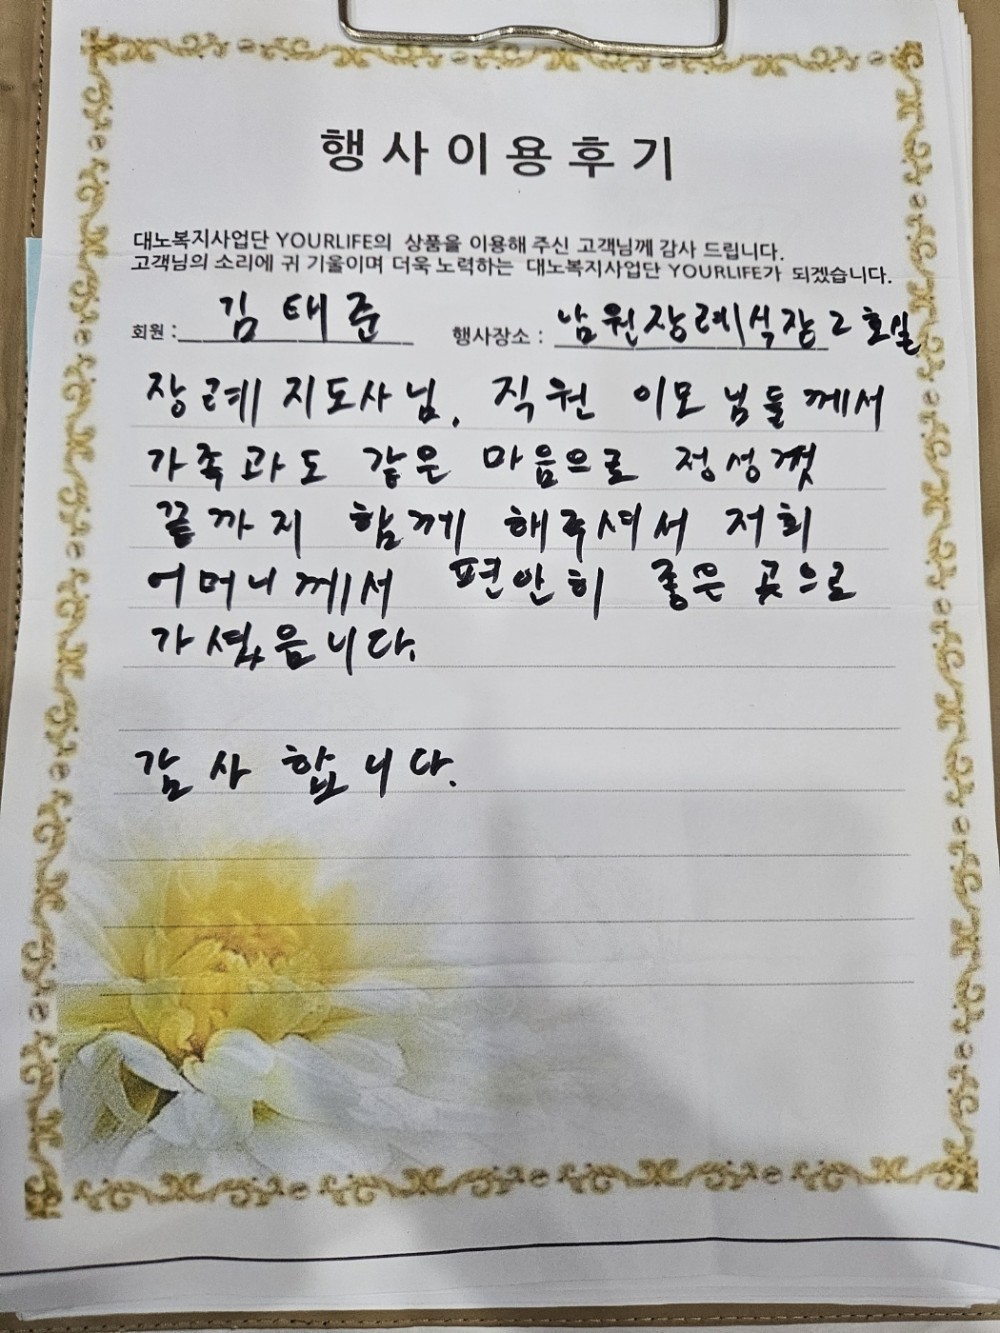 행사이용후기
대노복지사업단 YOURLIFE의 상품을 이용해 주신 고객님께 감사 드립니다.
고객님의 소리에 귀 기울이며 더욱 노력하는 대노복지사업단 YOURLIFE가 되겠습니다.
회원 : 김태준 행사장소 : 남원장례식장 2호실
장례지도사님, 직원 이모님들께서
가족과도 같은 마음으로 정성껏
끝까지 함께 해주셔서 저희
어머니께서 편안히 좋은 곳으로
가셨읍니다.
감사합니다.